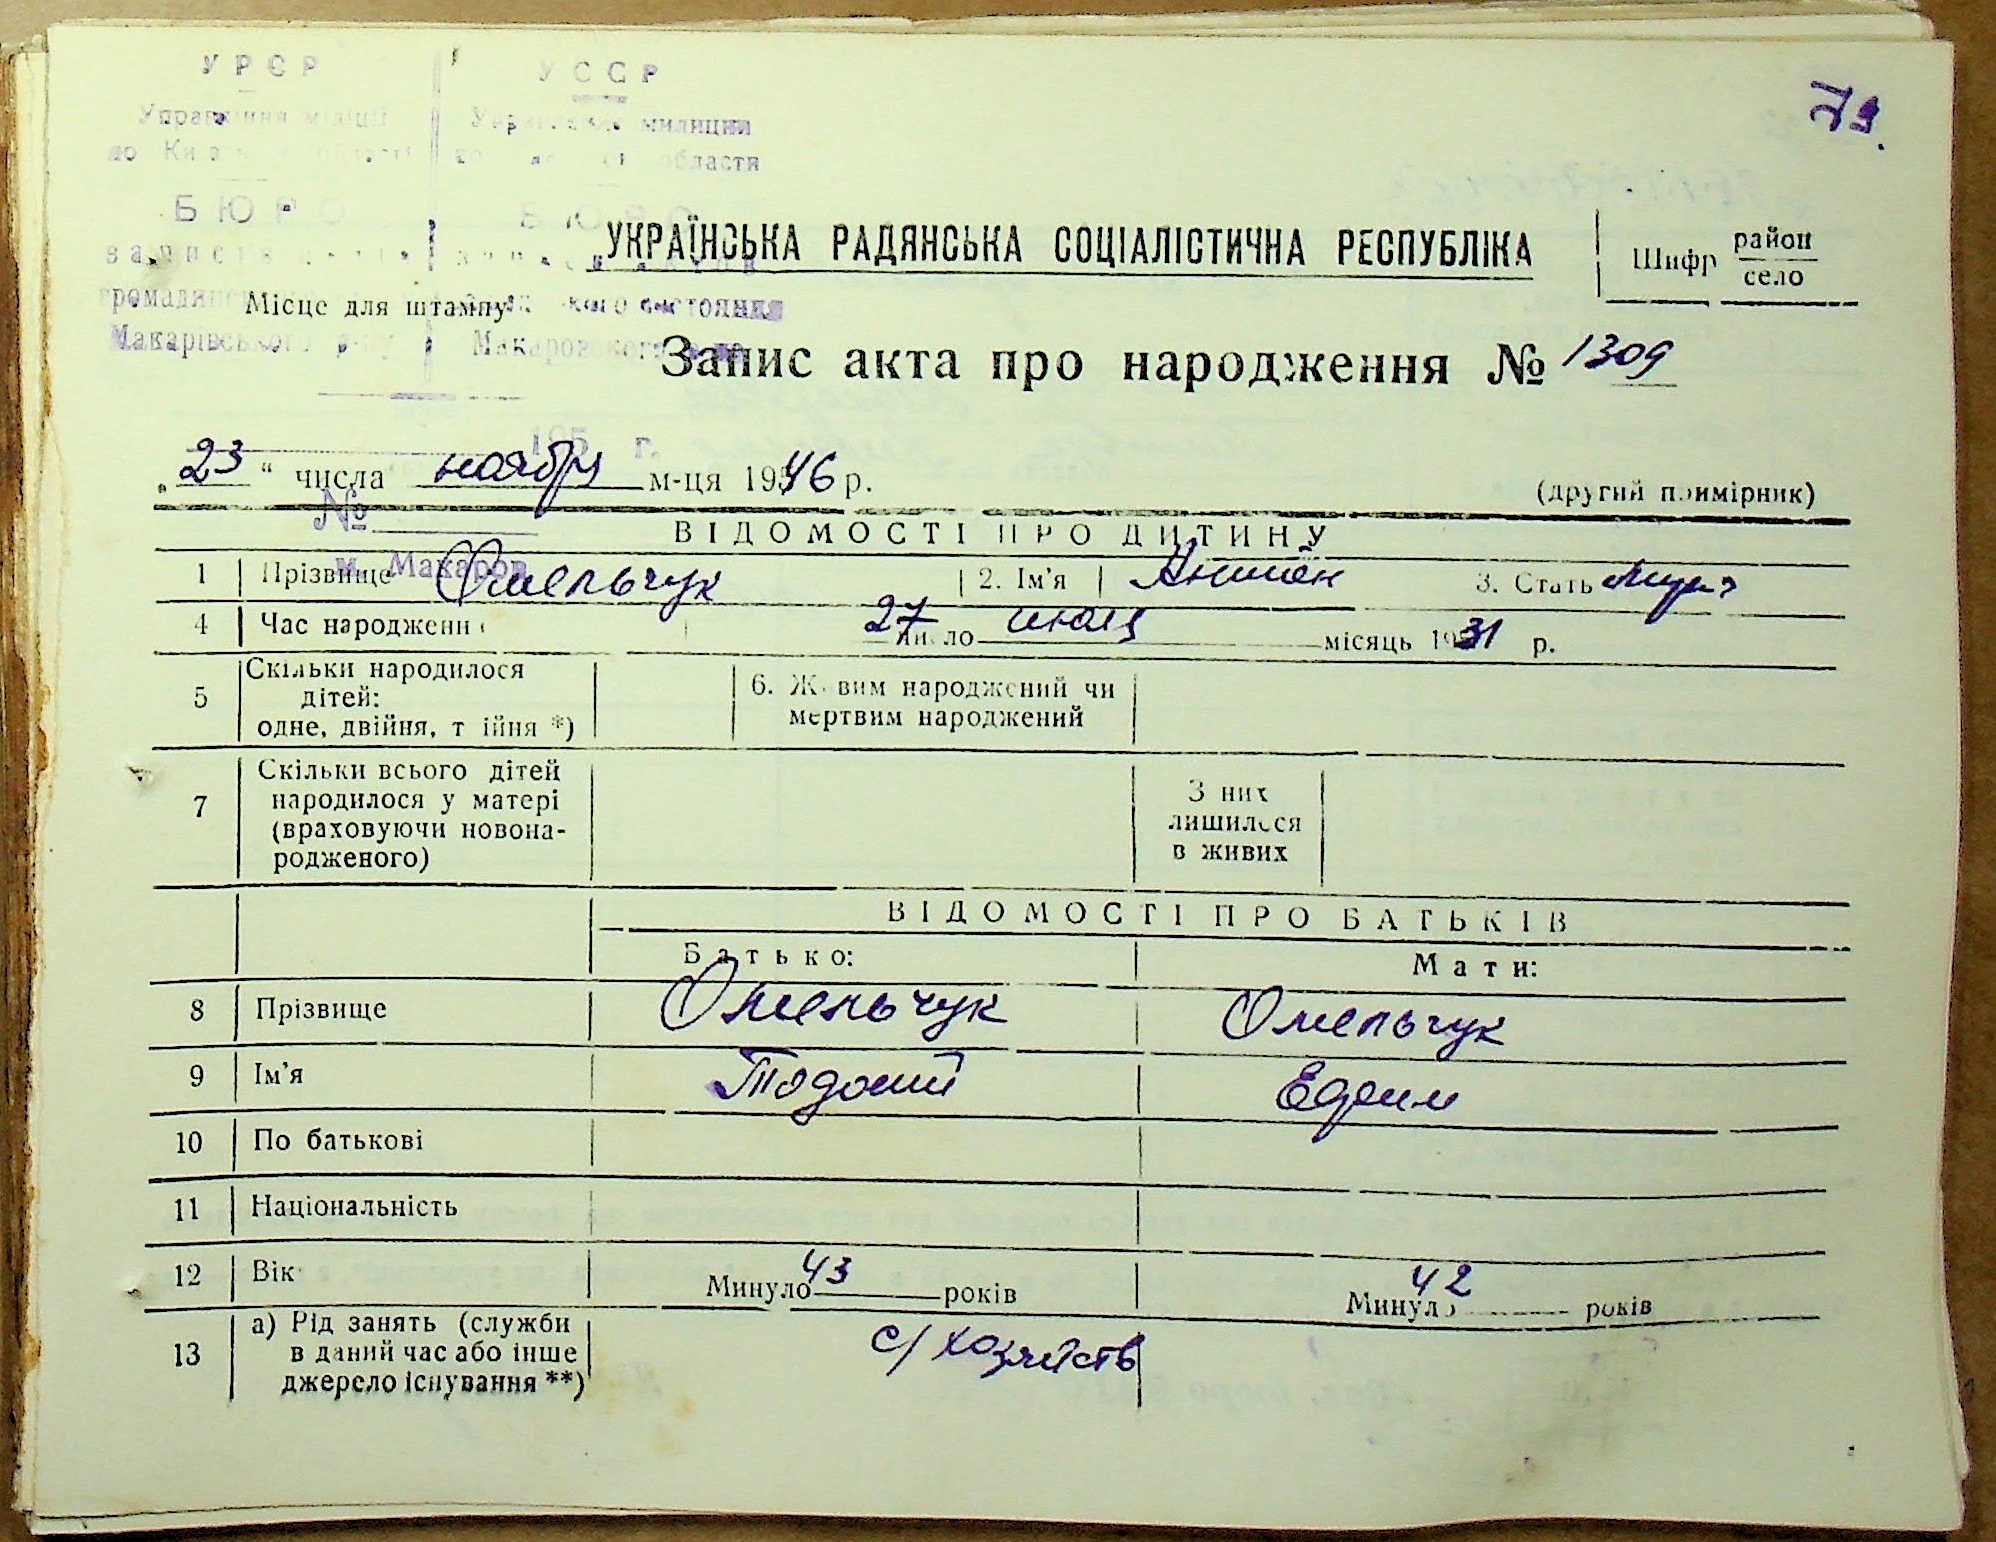 УРСР
УССР
79.
Управління міліції
Управление милиции
по області
области
БЮРО
БЮРО
УКРАЇНСЬКА РАДЯНСЬКА СОЦІАЛІСТИЧНА РЕСПУБЛІКА
Шифр район
село
Місце для штампу
Макарівського р-ну
Макаровского р-на
Запис акта про народження № 1309
195 г.
„23“ числа ноября м-ця 1946 р.
(другий примірник)
№
ВІДОМОСТІ ПРО ДИТИНУ
м. Макаров
1 Прізвище Омельчук 2. Ім'я 3. Стать
4 Час народження 27 число июля місяць 1931 р.
5 Скільки народилося дітей: одне, двійня, трійня *)
6. Живим народжений чи мертвим народжений
7 Скільки всього дітей народилося у матері (враховуючи новонародженого)
З них лишилося в живих
ВІДОМОСТІ ПРО БАТЬКІВ
Батько: Мати:
8 Прізвище Омельчук Омельчук
9 Ім'я Тодосий
10 По батькові
11 Національність
12 Вік Минуло 43 років Минуло 42 років
13 а) Рід занять (служби в даний час або інше джерело існування **) с/хозяйств